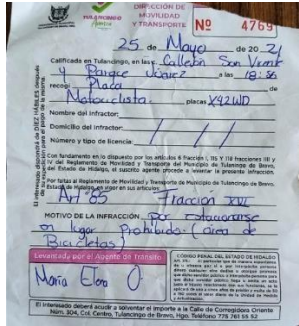 TULANCINGO
DIRECCIÓN DE
MOVILIDAD
Y TRANSPORTE
Nº 4769
25 de Mayo de 2021
Calificada en Tulancingo, en las y Callejón San Vicente
y Parque Juárez a las 18:56
recogí Placa de
Motociclista placas X92WD
Nombre del Infractor:
Domicilio del Infractor:
Número y tipo de licencia:
El interesado dispondrá de DIEZ HÁBILES después
de esta expedición para el pago de la misma.
Con fundamento en lo dispuesto por los artículos 6 fracción I, 115 Y 118 fracciones III y
IV del Reglamento de Movilidad y Transporte del Municipio de Tulancingo de Bravo,
del Estado de Hidalgo, el suscrito agente procede a levantar la presente infracción.
Por faltas al Reglamento de Movilidad y Transporte del Municipio de Tulancingo de Bravo,
Estado de Hidalgo, en vigor en sus artículos:
Art 65 Fracción XVI
MOTIVO DE LA INFRACCIÓN Por estacionarse
en lugar Prohibido (área de
Bicicletas)
Levantada por el Agente de Tránsito
María Elena O
CÓDIGO PENAL DEL ESTADO DE HIDALGO
El interesado deberá acudir a solventar el importe a la Calle de Corregidora Oriente
Núm. 304, Col. Centro, Tulancingo de Bravo, Hgo. Teléfono 775 761 54 52